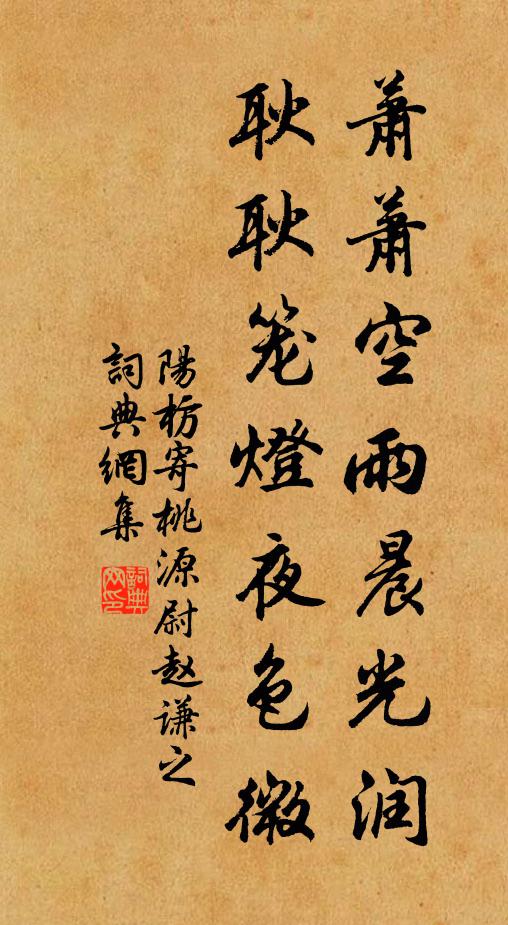 蕭蕭空雨晨光润
耿耿笼燈夜色微
陽枋寄桃源尉赵谦之
詞典網集
詞典网印